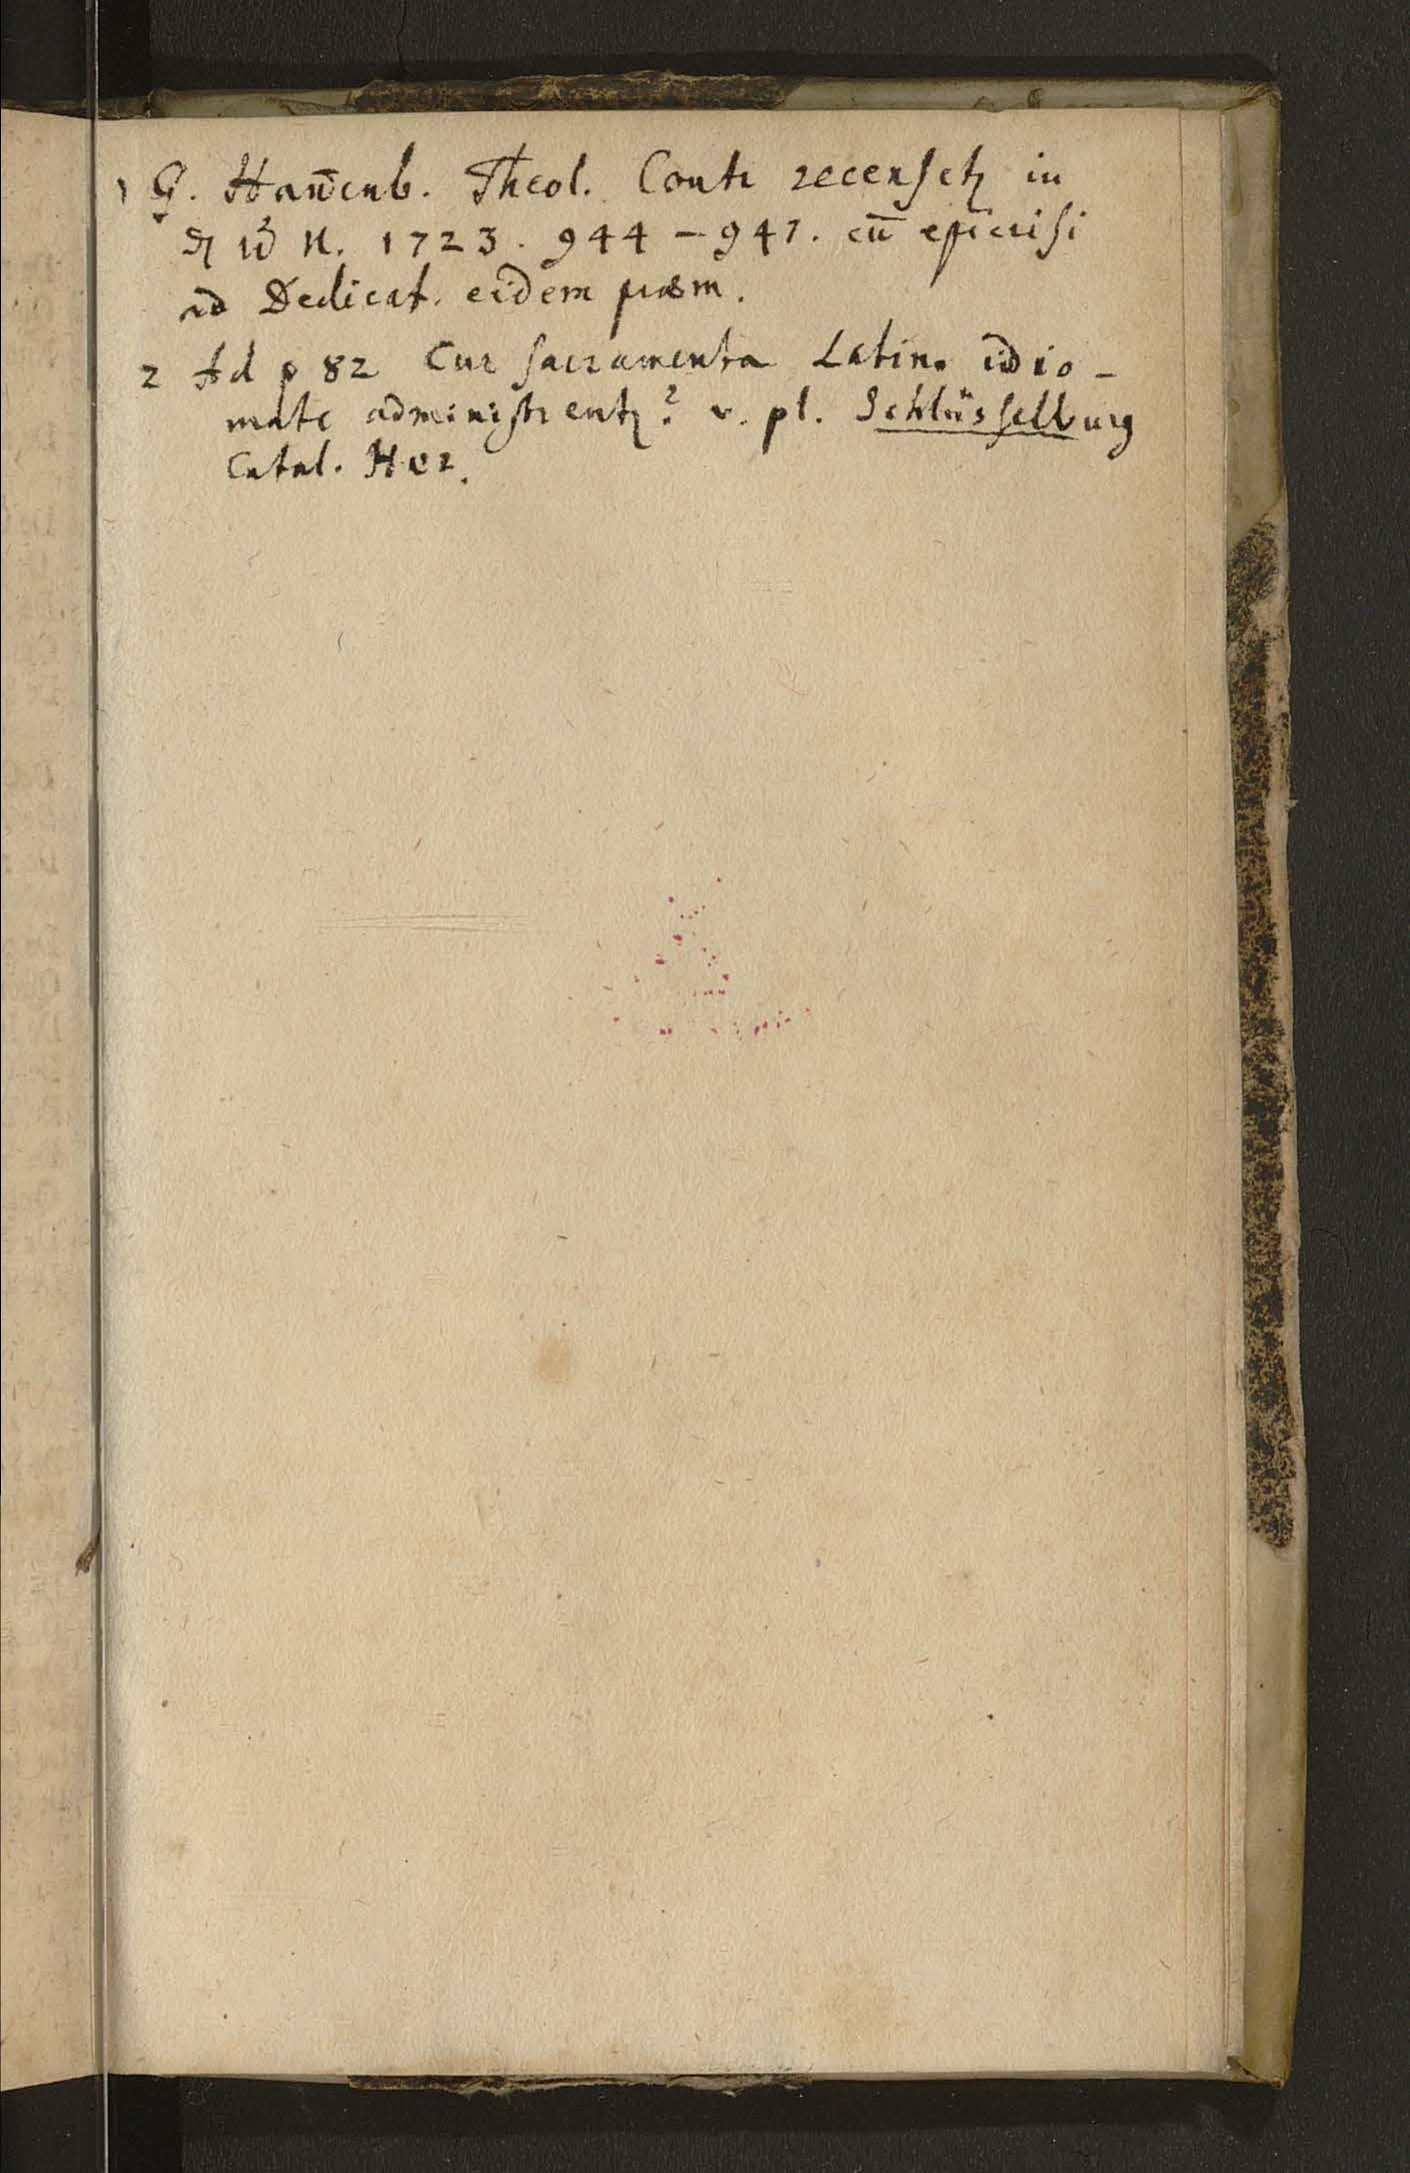 1 G. Han̅enb. Theol. Contr recensetꝫ in
N. 1723. 944-947. cu̅ epicrisi
ad Dedicat. eidem præm.
2 Ad p 82 Cur sacramenta Latino idio-
mate administrentꝫ? v. pl. Schlüsselburg
Catal. Hær.